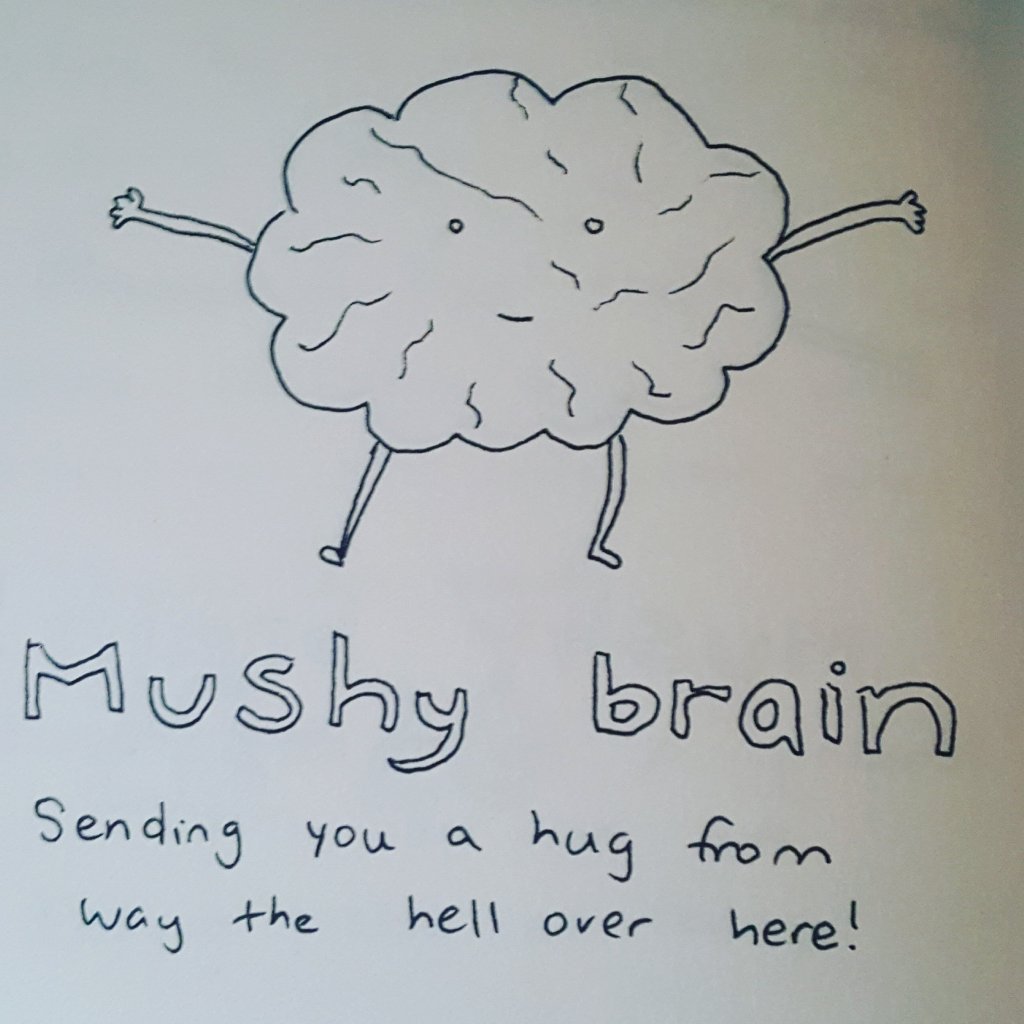 Mushy brain
Sending you a hug from
way the hell over here!